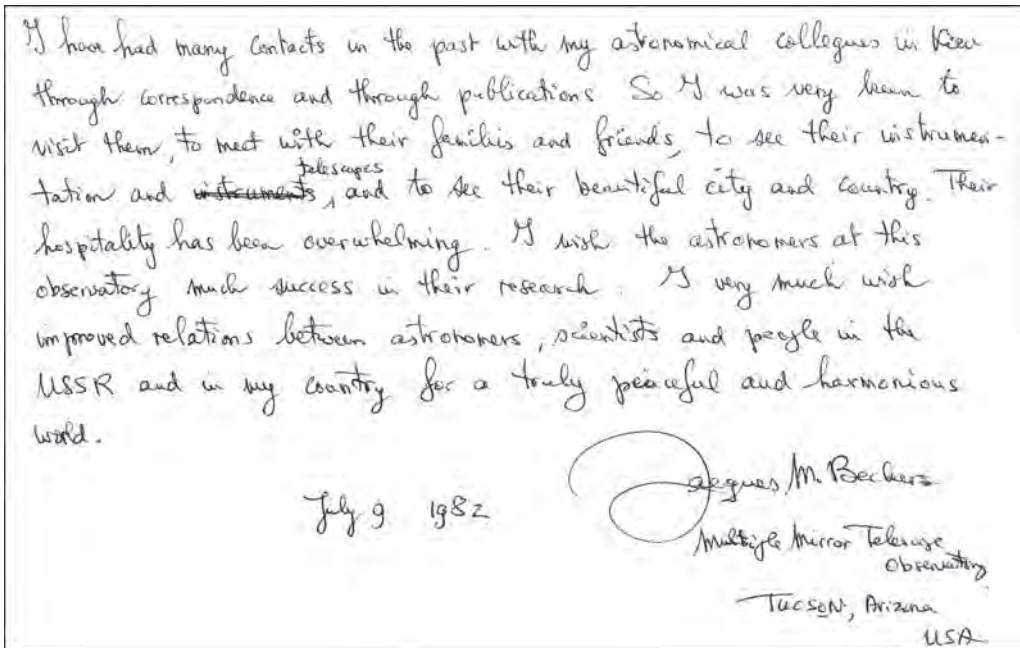 I have had many contacts in the past with my astronomical collegues in Kiev
through correspondence and through publications. So I was very keen to
visit them, to meet with their familis and friends, to see their instrumen-
telescopes
tation and instruments, and to see their beautiful city and country. Their
hospitality has been overwhelming. I wish the astronomers at this
observatory much success in their research. I very much wish
improved relations between astronomers, scientists and people in the
USSR and in my country for a truly peaceful and harmonious
world.
Jacques M. Beckers
July 9 1982
Multiple Mirror Telescope
Observatory
Tucson, Arizona
USA